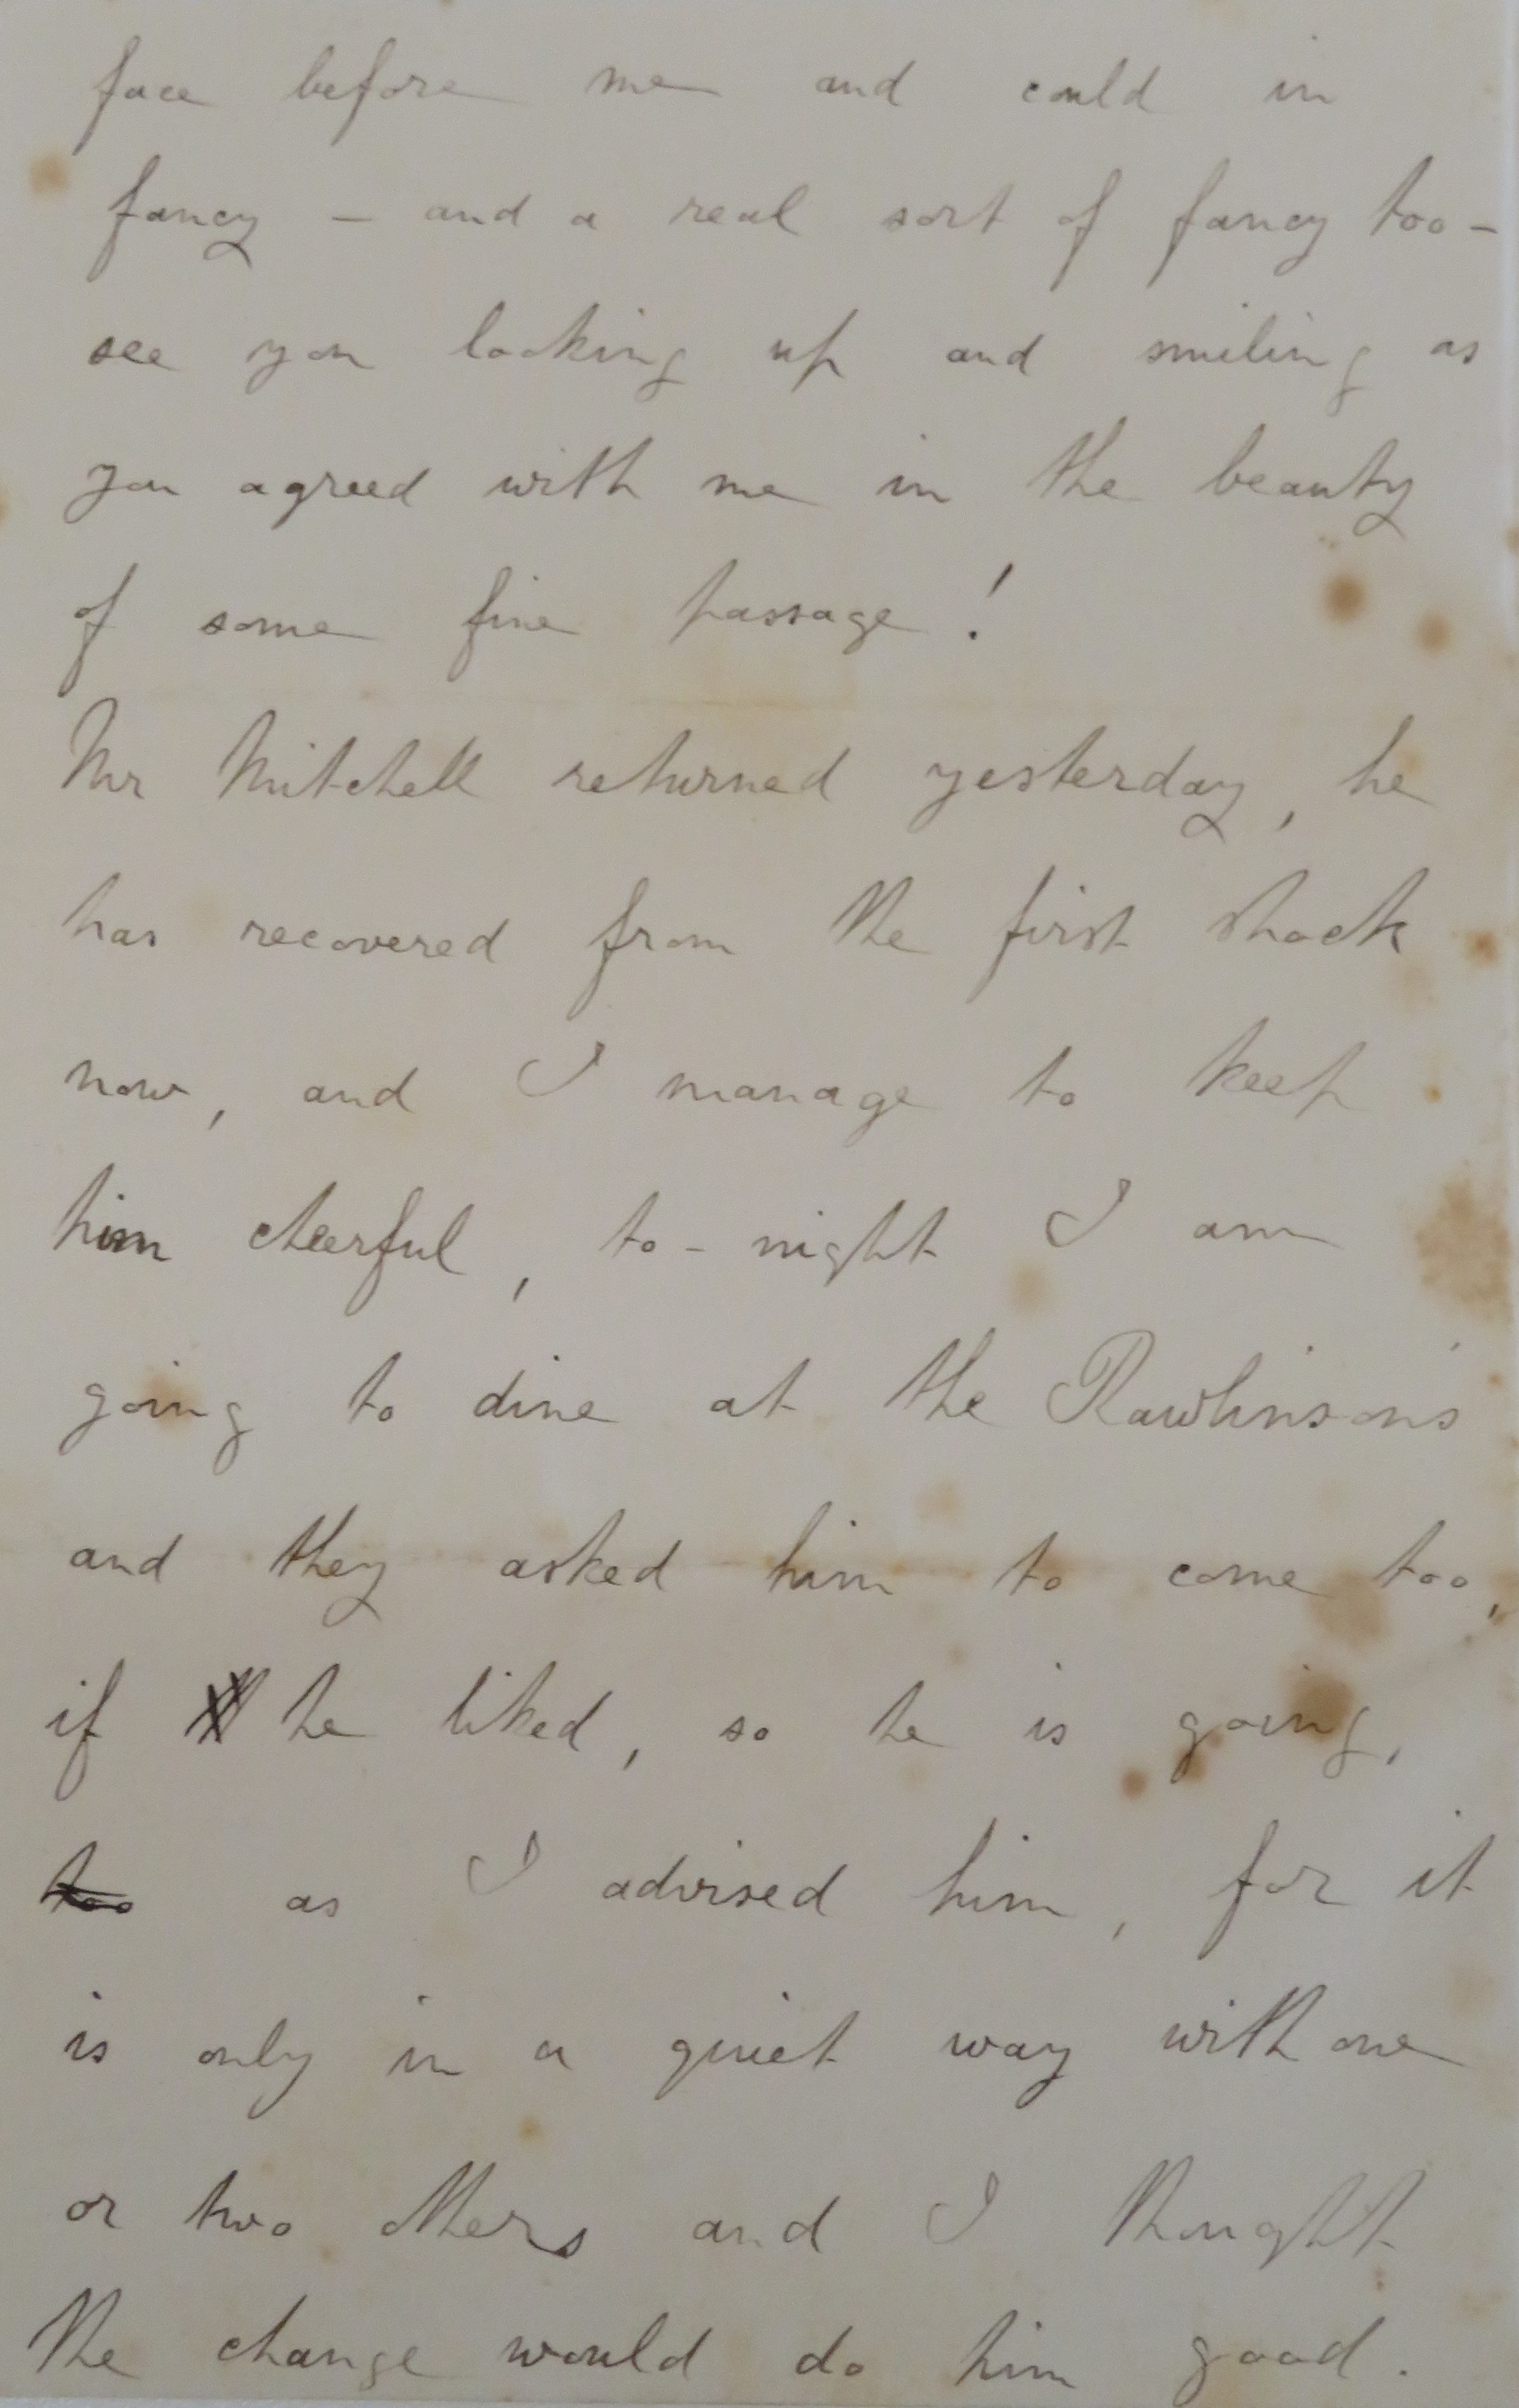 face before me and could in
fancy – and a real sort of fancy too –
see you looking up and smiling as
you agreed with me in the beauty
of some fine passage!
Mr Mitchell returned yesterday, he
has recovered from the first shock
now, and I manage to keep
him cheerful, to-night I am
going to dine at the Rawlinsons'
and they asked him to come too,
if he liked, so he is going,
too as I advised him, for it
is only in a quiet way with one
or two others and I thought
the change would do him good.